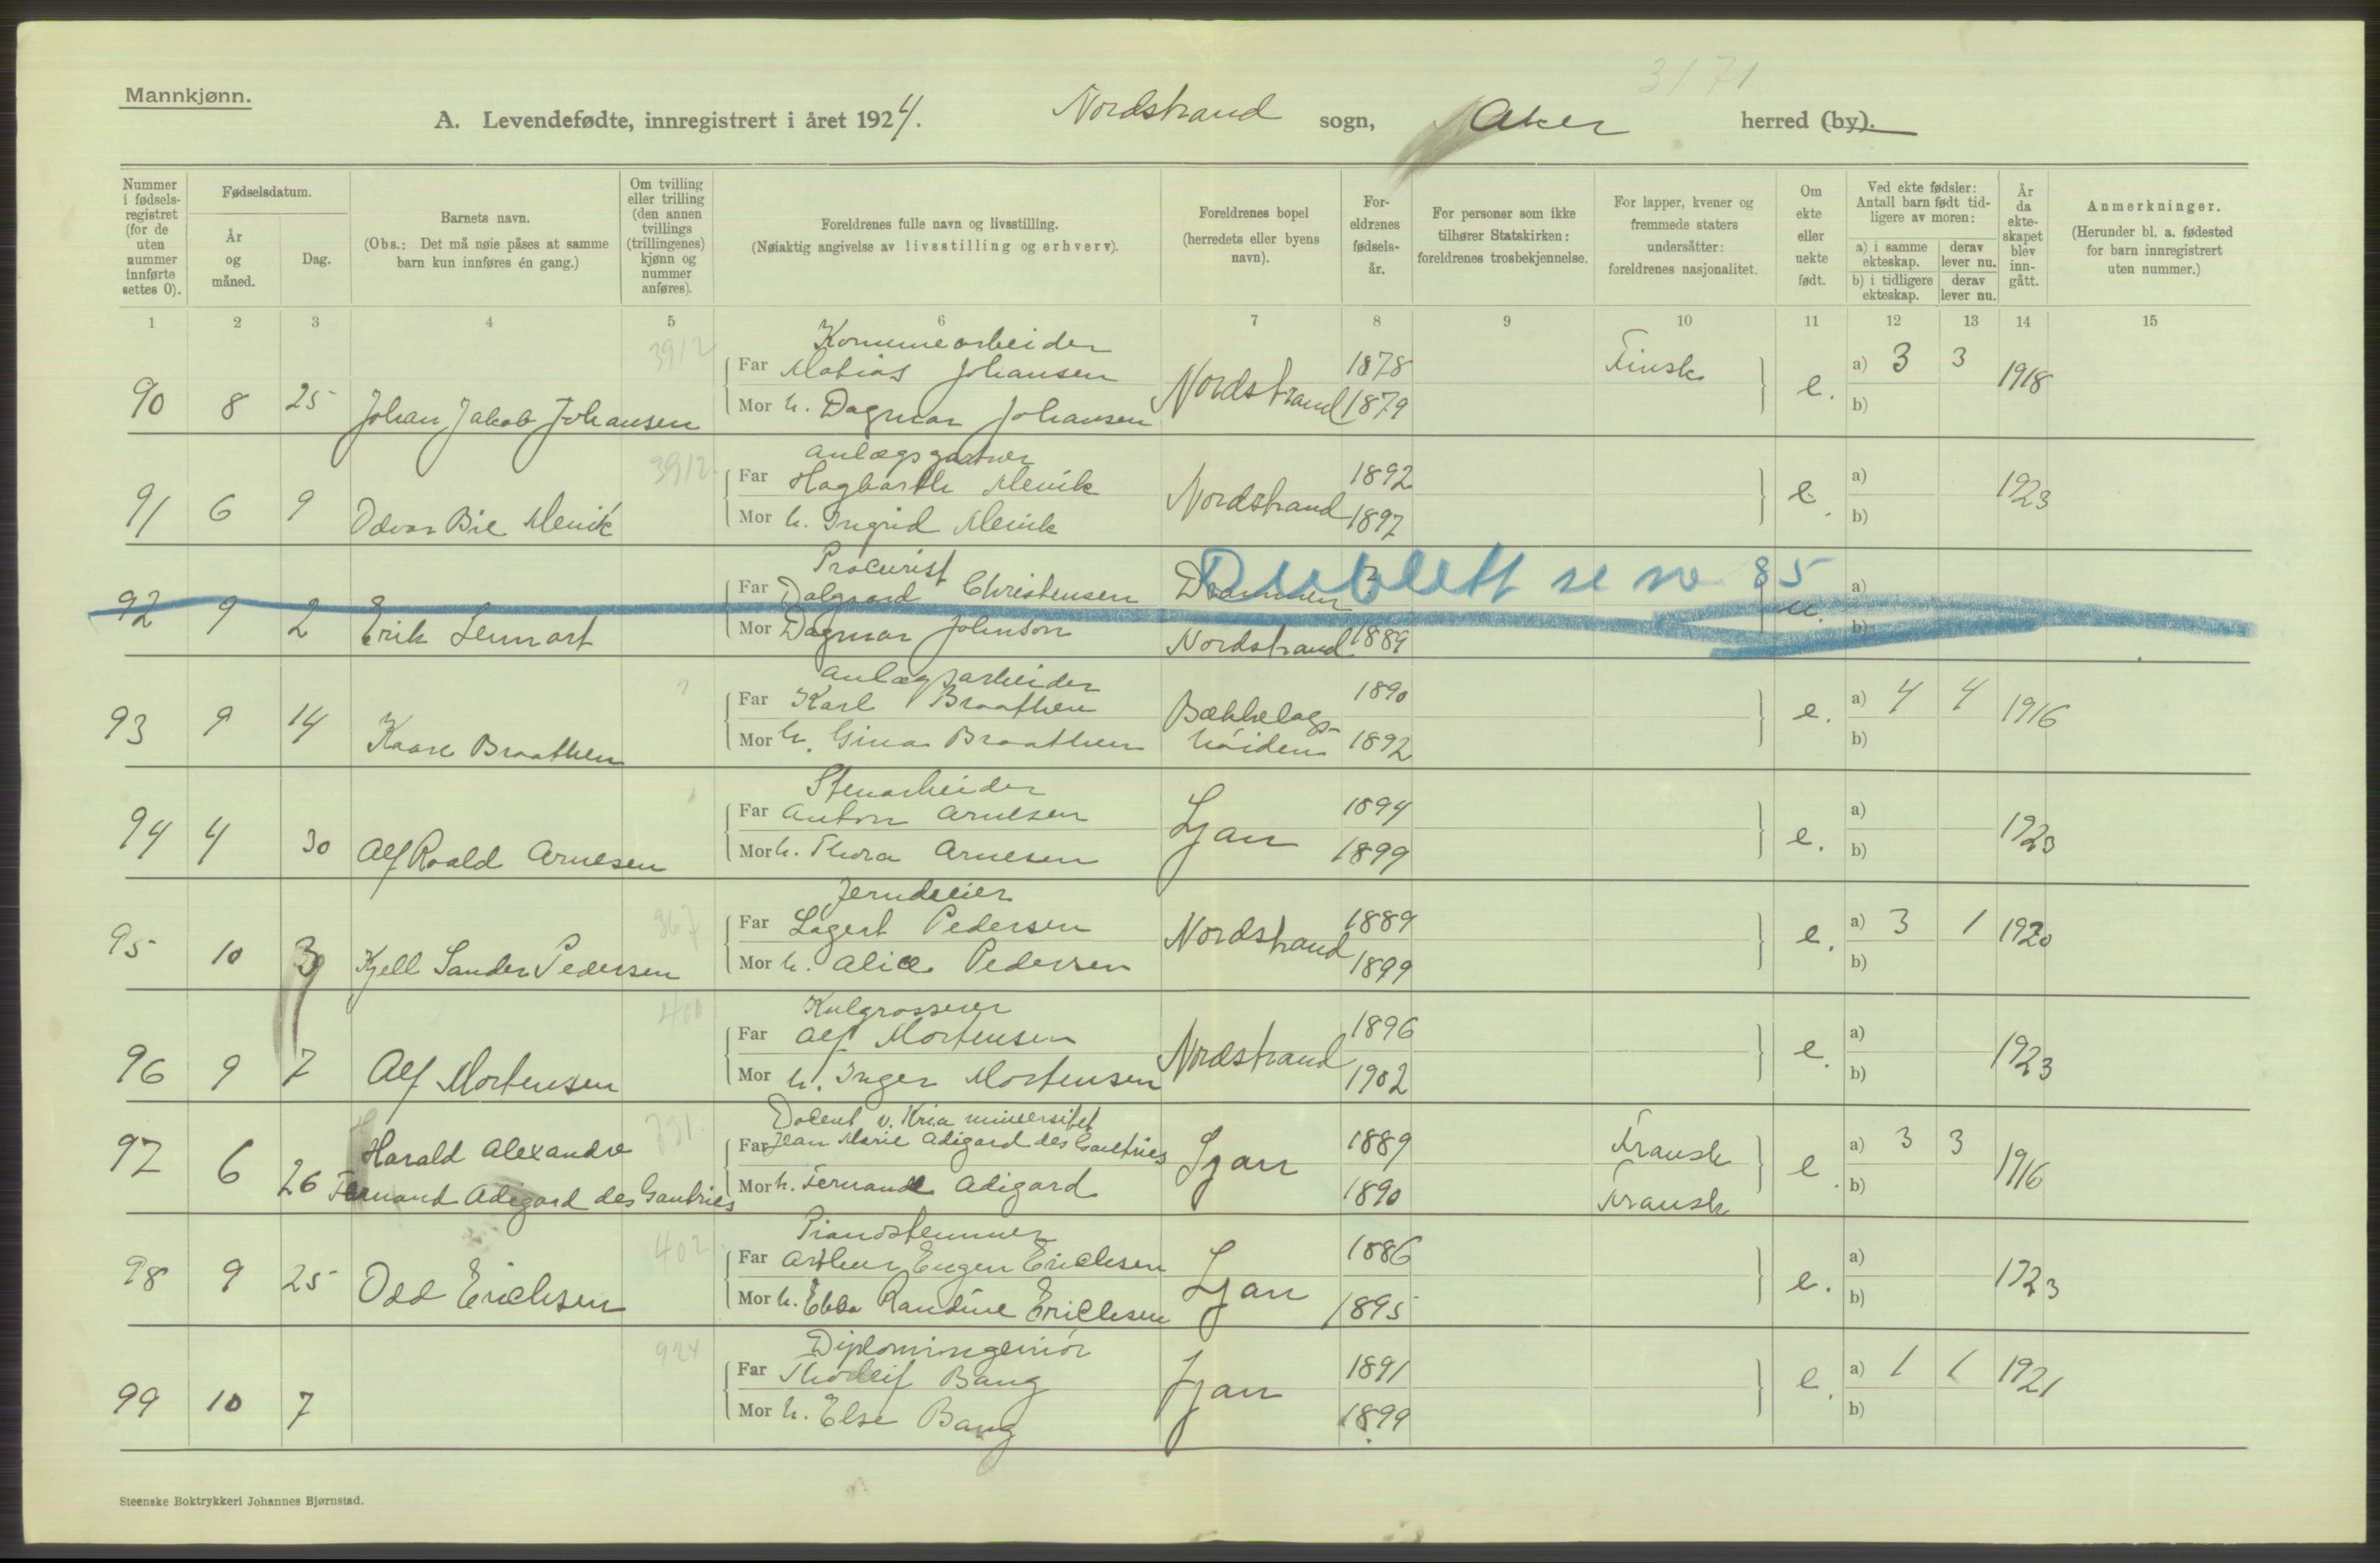 3171
Mannkjønn.
A. Levendefødte, innregistrert i året 1924. Nordstrand sogn, Aker herred (by).
Nummer i fødsels-registret (for de uten nummer innførte settes 0).
Fødselsdatum.
År og måned.
Dag.
Barnets navn.
(Obs.: Det må nøie påses at samme barn kun innføres én gang.)
Om tvilling eller trilling (den annen tvillings (trillingenes) kjønn og nummer anføres).
Foreldrenes fulle navn og livsstilling.
(Nøiaktig angivelse av livsstilling og erhverv).
Foreldrenes bopel (herredets eller byens navn).
For-eldrenes fødsels-år.
For personer som ikke tilhører Statskirken: foreldrenes trosbekjennelse.
For lapper, kvener og fremmede staters undersåtter: foreldrenes nasjonalitet.
Om ekte eller uekte født.
Ved ekte fødsler: Antall barn født tid-ligere av moren:
a) i samme ekteskap. derav lever nu.
b) i tidligere ekteskap. derav lever nu.
År da ekte-skapet blev inn-gått.
Anmerkninger.
(Herunder bl. a. fødested for barn innregistrert uten nummer.)
1 2 3 4 5 6 7 8 9 10 11 12 13 14 15
3912 Kommunearbeider
Far Matias Johansen 1878 Finsk a) 3 3
90 8 25 Johan Jakob Johansen Nordstrand e. 1918
Mor h. Dagmar Johansen 1879 b)
3912 Anlægsgartner
Far Hagbarth Menik 1892 a)
91 6 9 Odvar Bie Menik Nordstrand e. 1923
Mor h. Ingrid Menik 1897 b)
Procurist
Far Dalgaard Christensen Drammen ? a)
Dublett se no 85
92 9 2 Erik Lennart u.
Mor Dagmar Johnson Nordstrand 1889 b)
Anlægsarbeider
Far Karl Braathen 1890 a) 4 4
93 9 14 Kaare Braathen Bækkelags-høiden e. 1916
Mor h. Gina Braathen 1892 b)
Stenarbeider
Far Anton Arnesen 1894 a)
94 4 30 Alf Roald Arnesen Ljan e. 1923
Mor h. Thora Arnesen 1899 b)
367 Jerndreier
Far Lagert Pedersen 1889 a) 3 1
95 10 3 Kjell Sander Pedersen Nordstrand e. 1920
Mor h. Alice Pedersen 1899 b)
400 Kulgrosserer
Far Alf Mortensen 1896 a)
96 9 7 Alf Mortensen Nordstrand e. 1923
Mor h. Inger Mortensen 1902 b)
731 Docent v. Kria universitet
Far Jean Marie Adigard des Gautries 1889 Fransk a) 3 3
97 6 26 Harald Alexandre Ljan e. 1916
Fernand Adigard des Gautries
Mor h. Fernande Adigard 1890 Fransk b)
402 Pianostemmer
Far Arthur Eugen Erichsen 1886 a)
98 9 25 Odd Erichsen Ljan e. 1923
Mor h. Ebba Randine Erichsen 1895 b)
924 Diplomingeniör
Far Thorleif Bang 1891 a) 1 1
99 10 7 Ljan e. 1921
Mor h. Else Bang 1899 b)
Steenske Boktrykkeri Johannes Bjørnstad.